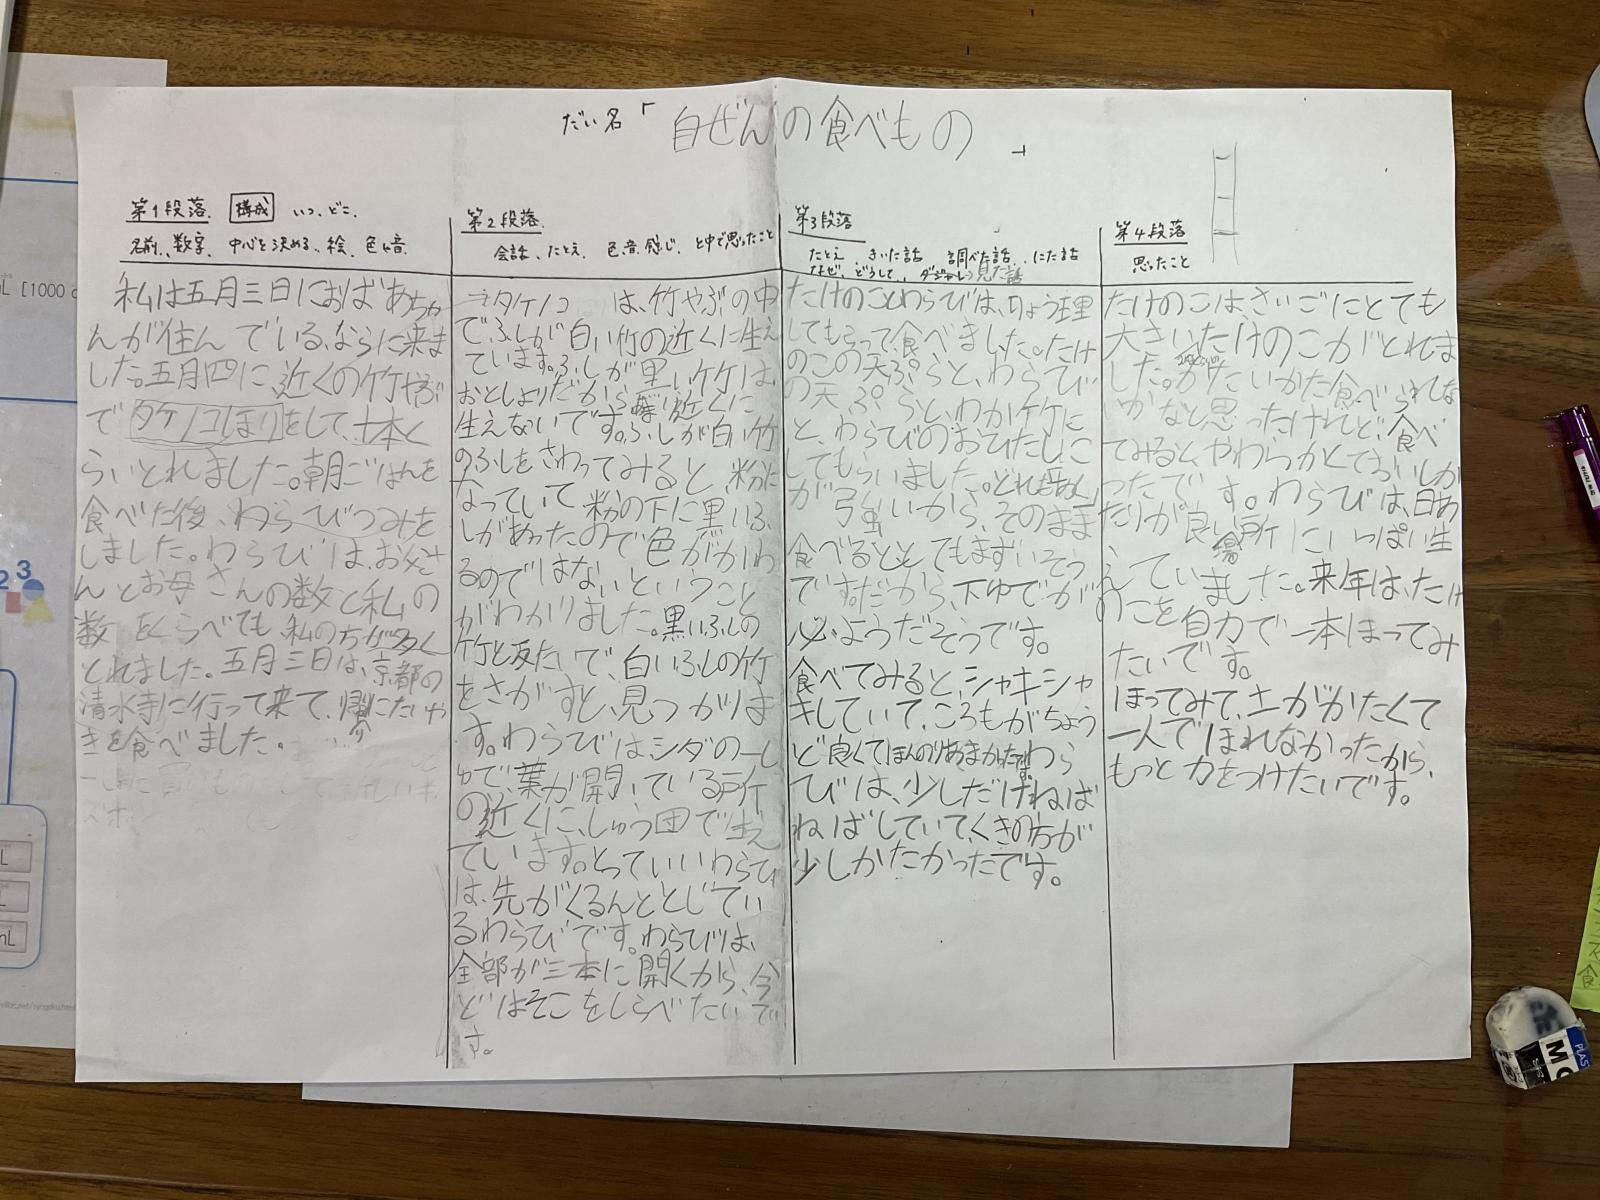 だい名「自ぜんの食べもの」
第1段落 構成 いつ、どこ、
名前、数字、中心を決める、絵、色々音
私は五月三日におばあちゃ
んが住んでいる、ならに来ま
した。五月四に近くの竹やぶ
でタケノコほりをして、十本く
らいとれました。朝ごはんを
食べた後、わらびつみを
しました。わらびは、お父さ
んとお母さんの数と私の
数をくらべても、私の方が多く
とれました。五月三日は、京都の
清水寺に行って来て、にたいや
きを食べました。
第2段落
会話、たとえ、色、音、感じ、と中で思ったこと
タケノコは、竹やぶの中
で、ふしが白い竹の近くに生え
ています。ふしが黒い竹は、
おとしよりだから近くに
生えないです。ふしが白い竹
のふしをさわってみると、粉に
なっていて粉の下に黒いふ
しがあったので色がかわ
るのではないということ
がわかりました。黒いふしの
竹と反たいで、白いふしの竹
をさがすと、見つかりま
す。わらびはシダの一し
ゅで、葉が開いている所
の近くに、しゅう団で生え
ています。とっていいわらび
は、先がくるんととじてい
るわらびです。わらびは、
全部が三本に開くから、今
どはそこをしらべたいで
す。
第3段落
たとえ きいた話 調べた話、にた話
なぜ、どうして、ダジャレ、見た話
たけのことわらびは、りょう理
してもらって食べました。たけ
のこの天ぷらと、わらび
の天ぷらと、わか竹に
と、わらびのおひたしに
してもらいました。どれも
が弱いから、そのまま
食べるととてもまずいそう
です。だから、下ゆでが
必ようだそうです。
食べてみると、シャキシャ
キしていて、ころもがちょう
ど良くてほんのりあまかったです。わら
びは、少しだけねば
ねばしていて、くきの方が
少しかたかったです。
第4段落
思ったこと
たけのこは、さいごにとても
大きいたけのこがとれま
した。かたいかた食べられない
かなと思ったけれど、食べ
てみると、やわらかくておいしか
ったです。わらびは、日あ
たりが良い場所にいっぱい生
えていました。来年は、たけ
のこを自力で一本ほってみ
たいです。
ほってみて、土がかたくて
一人でほれなかったから、
もっと力をつけたいです。